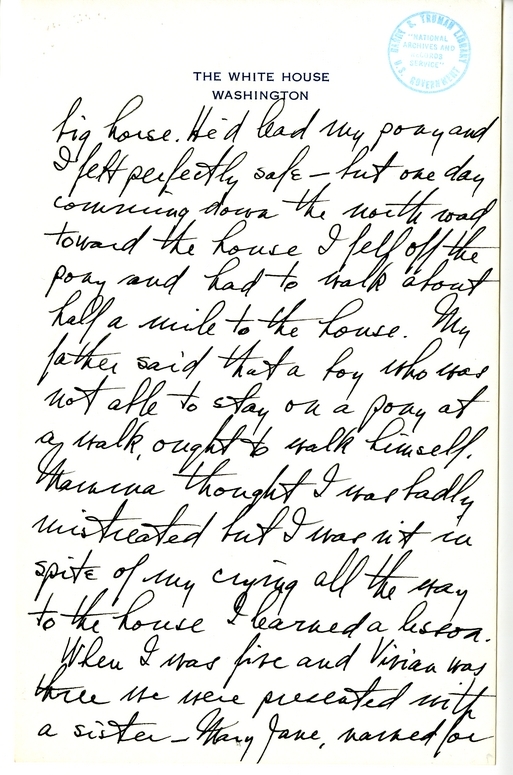 HARRY S. TRUMAN LIBRARY
"NATIONAL
ARCHIVES AND
RECORDS
SERVICE"
U.S. GOVERNMENT
THE WHITE HOUSE
WASHINGTON
big horse. He'd lead my pony and
I felt perfectly safe – but one day
comming down the north road
toward the house I fell off the
pony and had to walk about
half a mile to the house. My
father said that a boy who was
not able to stay on a pony at
a walk, ought to walk himself.
Mamma thought I was badly
mistreated but I wasn't in
spite of my crying all the way
to the house I learned a lesson.
When I was five and Vivian was
three we were presented with
a sister – Mary Jane, named for